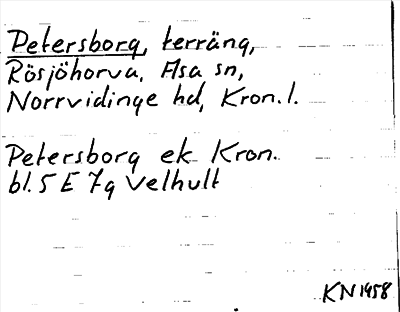 Petersborg, terräng,
Rösjöhorva, Asa sn,
Norrvidinge hd, Kron. l.
Petersborg ek Kron.
bl. 5 E 7g Velhult
KN 1958